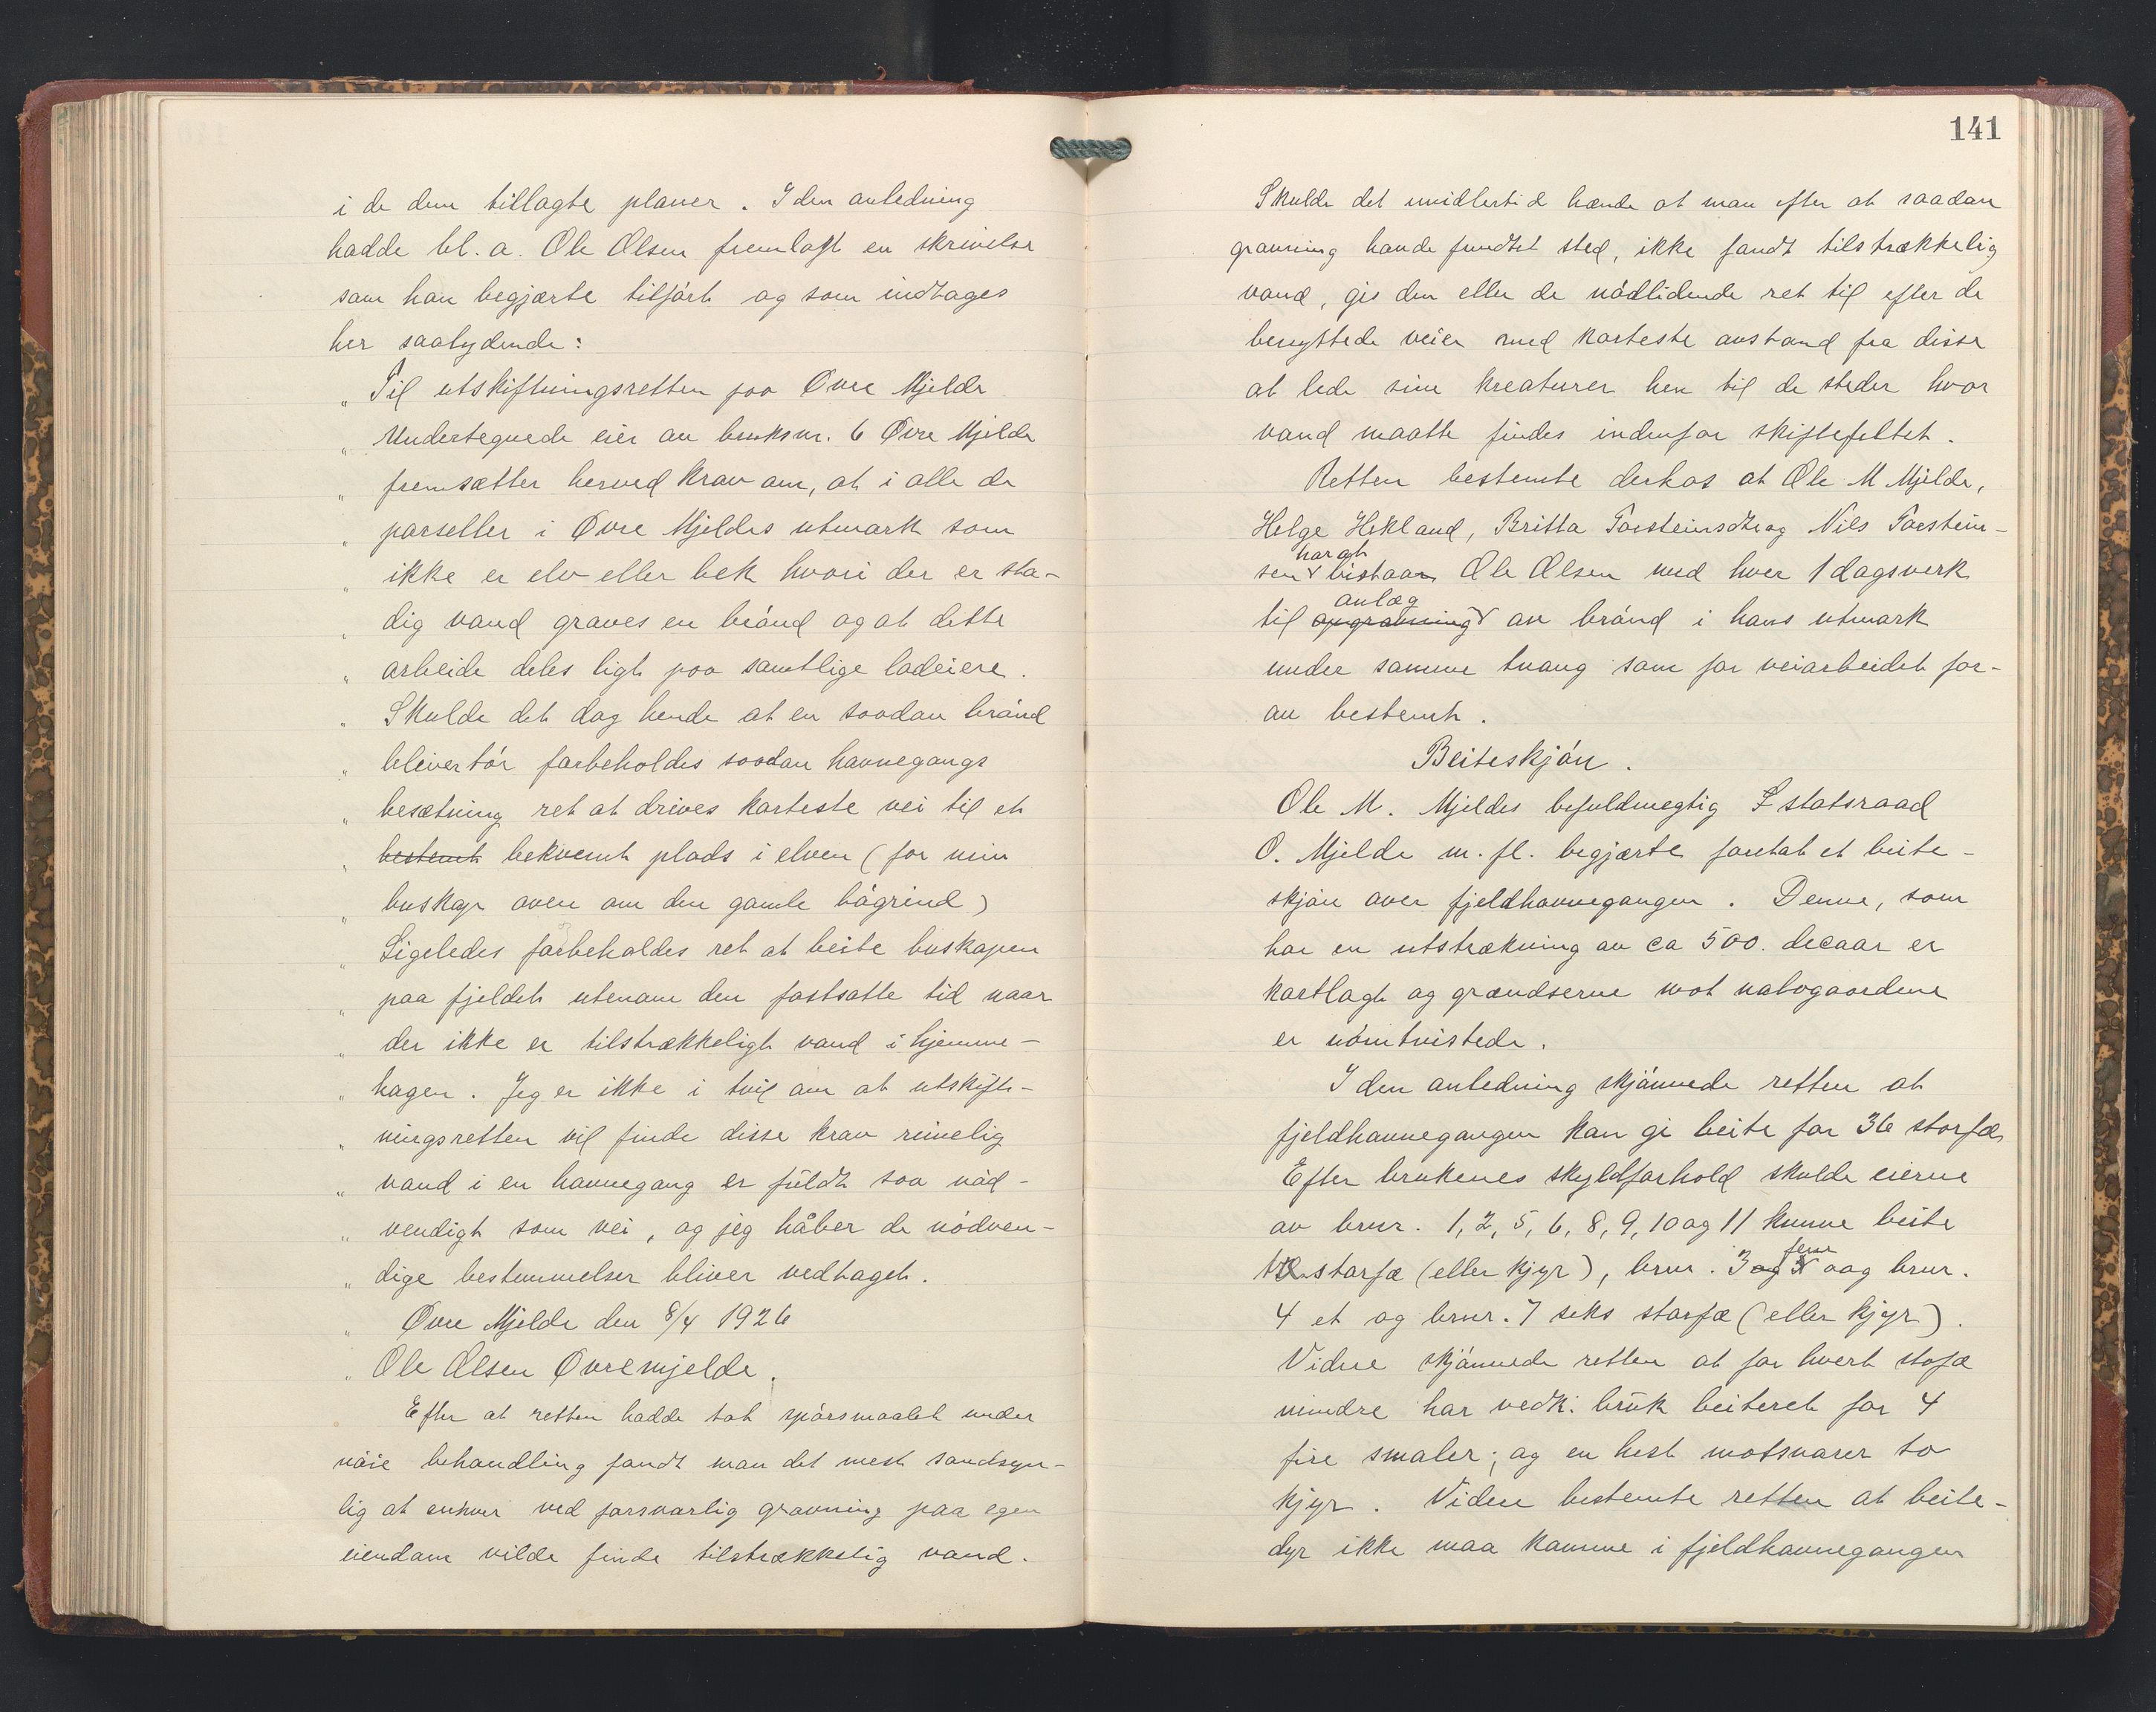 i de dem tillagte planer. I den anledning
hadde bl. a. Ole Olsen fremlagt en skrivelse
som han begjærte tilført og som indtages
her saalydende:
„ Til utskiftningsretten paa Øvre Mjelde
„ Undertegnede eier av bruksnr. 6 Øvre Mjelde
„ fremsætter herved krav om, at i alle de
„ parseller i Øvre Mjeldes utmark som
„ ikke er elv eller bek hvori der er sta-
„ dig vand graves en brønd og at dette
„ arbeide deles ligt paa samtlige lodeiere.
„ Skulde det dog hende at en saadan brønd
„ bliver tør forbeholdes saadan havnegangs
„ besætning ret at drives korteste vei til et
„ bestemt bekvemt plads i elven (for min
„ buskap oven om den gamle bøgrind)
„ Ligeledes forbeholdes ret at beite buskapen
„ paa fjeldet utenom den fastsatte tid naar
„ der ikke er tilstrækkeligt vand i hjemme-
„ hagen. Jeg er ikke i tvil om at utskift-
„ ningsretten vil finde disse krav rimelig
„ vand i en havnegang er fuldt saa nød-
„ vendigt som vei, og jeg håber de nødven-
„ dige bestemmelser bliver vedtaget.
„ Øvre Mjelde den 8/4 1926
„ Ole Olsen Øvremjelde.
Efter at retten hadde tat spørsmaalet under
nøie behandling fandt man det mest sandsyn-
lig at enhver ved forsvarlig gravning paa egen
eiendom vilde finde tilstrækkelig vand.
141
Skulde det imidlertid hænde at man efter at saadan
gravning havde fundtet sted, ikke fandt tilstrækkelig
vand, gis den eller de nødlidende ret til efter de
benyttede veier med korteste avstand fra disse
at lede sine kreaturer hen til de steder hvor
vand maatte findes indenfor skiftefeltet.
Retten bestemte derhos at Ole M Mjelde,
Helge Hekland, Britta Torsteinsdtr og Nils Torstein-
har at
sen bistaar Ole Olsen med hver 1 dagsverk
anlæg
til opgravning av brønd i hans utmark
under samme tvang som for veiarbeidet for-
an bestemt.
Beiteskjøn.
Ole M. Mjeldes befuldmegtig F statsraad
O. Mjelde m. fl. begjærte foretat et beite-
skjøn over fjeldhavnegangen. Denne, som
har en utstrækning av ca 500. decaar er
kartlagt og grændserne mot nabogaardene
er uomtvistede.
I den anledning skjønnede retten at
fjeldhavnegangen kan gi beite for 36 storfæ
Efter brukenes skyldforhold skulde eierne
av brnr. 1, 2, 5, 6, 8, 9, 10 og 11 kunne beite
fem
tre storfæ (eller kjyr), brnr. 3 og 3 oag brnr.
4 et og brnr. 7 seks storfæ (eller kjyr).
Videre skjønnede retten at for hvert stofæ
mindre har vedk. bruk beiteret for 4
fire smaler; og en hest motsvarer to
kjyr. Videre bestemte retten at beite-
dyr ikke maa komme i fjeldhavnegangen